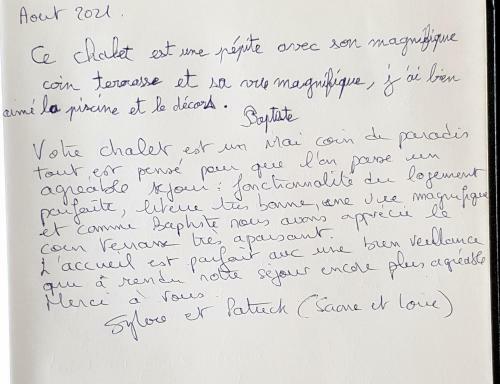 Aout 2021.
Ce chalet est une pépite avec son magnifique
coin terrasse et sa vue magnifique, j'ai bien
aimé la piscine et le décors.
Baptiste
Votre chalet est un vrai coin de paradis
tout est pensé pour que l'on passe un
agréable séjour : fonctionnalité du logement
parfaite, literie très bonne, une vue magnifique
et comme Baptiste nous avons apprécié le
coin terrasse très apaisant.
L'accueil est parfait avec une bien veillance
qui à rendu notre séjour encore plus agréable
Merci à vous.
et Patrick (Saone et Loire)